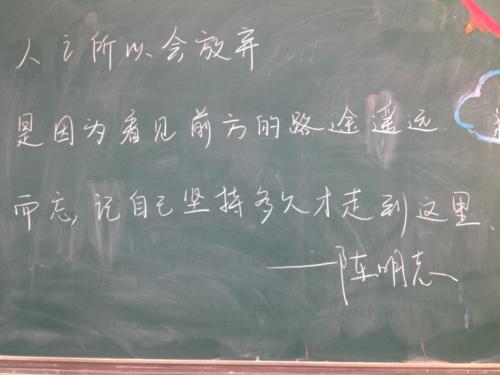 人之所以会放弃
是因为看见前方的路途遥远
而忘记自己坚持多久才走到这里、
——陈明志